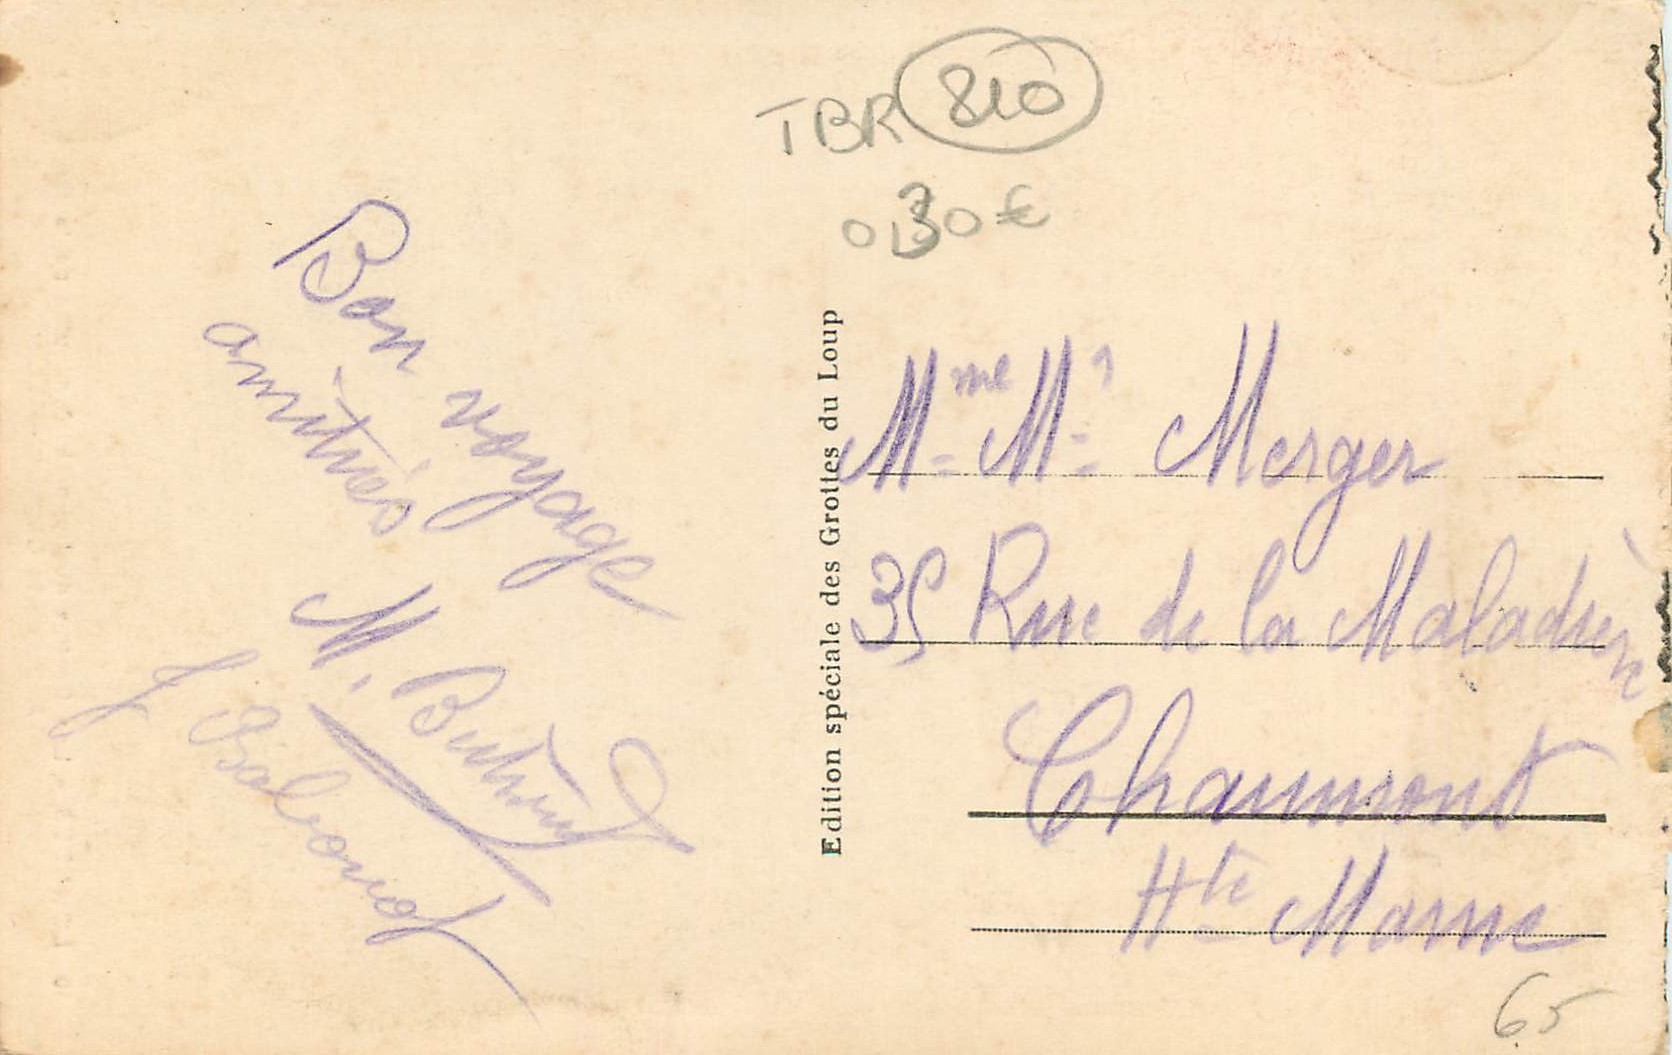 TBR 810
0,30 €
Bon voyage
amitiés
M.
J
Edition spéciale des Grottes du Loup
Mme Mr Merger
35 Rue de la Maladière
Chaumont
Hte Marne
65